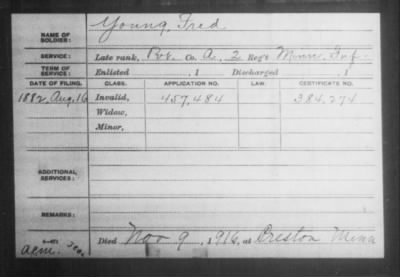 NAME OF SOLDIER: Young, Fred
SERVICE: Late rank, Pvt. Co. A, 2 Reg't Minn. Inf.
TERM OF SERVICE: Enlisted , 1 Discharged , 1
DATE OF FILING. CLASS. APPLICATION NO. LAW. CERTIFICATE NO.
1882, Aug, 16 Invalid, 457,484 384,274
Widow,
Minor,
ADDITIONAL SERVICES:
REMARKS:
Died Nov 9, 1916, at Preston Minn